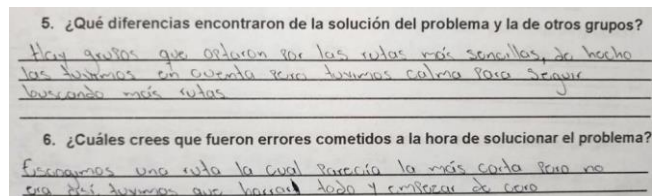 5. ¿Qué diferencias encontraron de la solución del problema y la de otros grupos?
Hay grupos que optaron por las rutas más sencillas, de hecho
las tuvimos en cuenta pero tuvimos calma para seguir
buscando más rutas
6. ¿Cuáles crees que fueron errores cometidos a la hora de solucionar el problema?
una ruta la cual parecía la más corta pero no
era así, tuvimos que borrar todo y empezar de cero